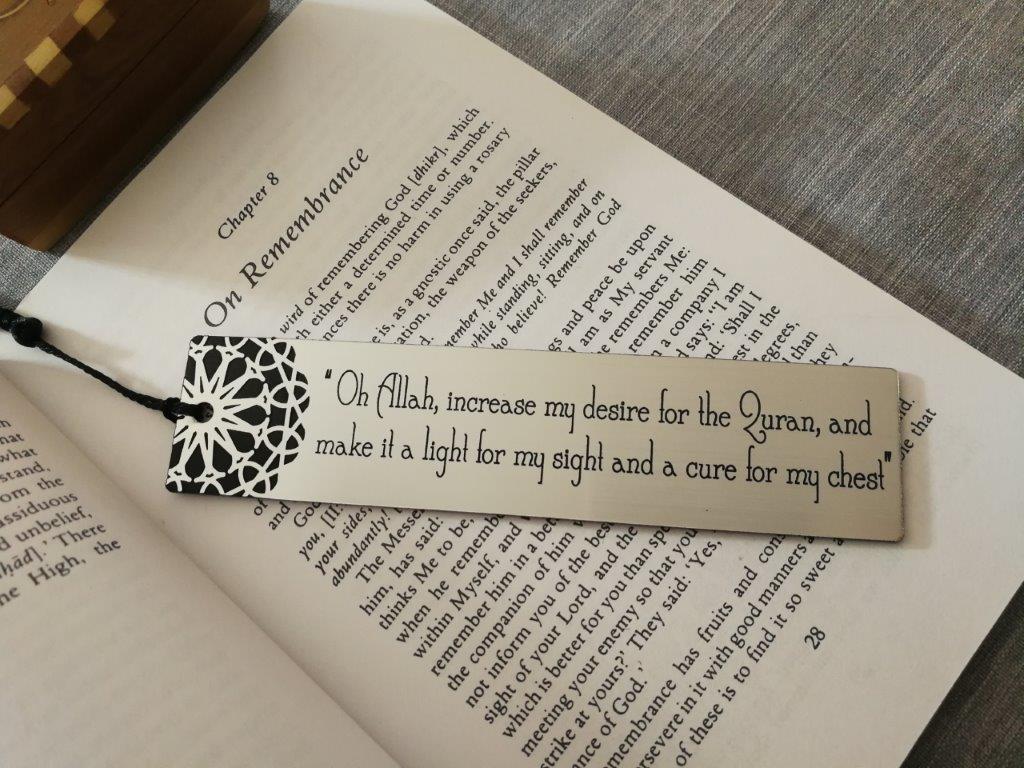 Chapter 8
On Remembrance
wird of remembering God [dhikr], which
either a determined time or number.
there is no harm in using a rosary
is, as a gnostic once said, the pillar
the weapon of the seekers,
Me and I shall remember
while standing, sitting, and on
believe! Remember God
and peace be upon
I am as My servant
he remembers Me:
remember him
in a company I
says: "I am
'Shall I
in the
than
"Oh Allah, increase my desire for the Quran, and
make it a light for my sight and a cure for my chest"
that
and
you,
your sides,
abundantly!
The
him, has said:
thinks Me to be,
when he
within Myself, and
remember him in a
the companion of him
not inform you of the
sight of your Lord, and the
which is better for you than
meeting your enemy so that
strike at yours?' They said: 'Yes,
of God.'
has fruits and
in it with good manners
of these is to find it so sweet
28
what
stand,
from the
assiduous
unbelief,
There
High, the